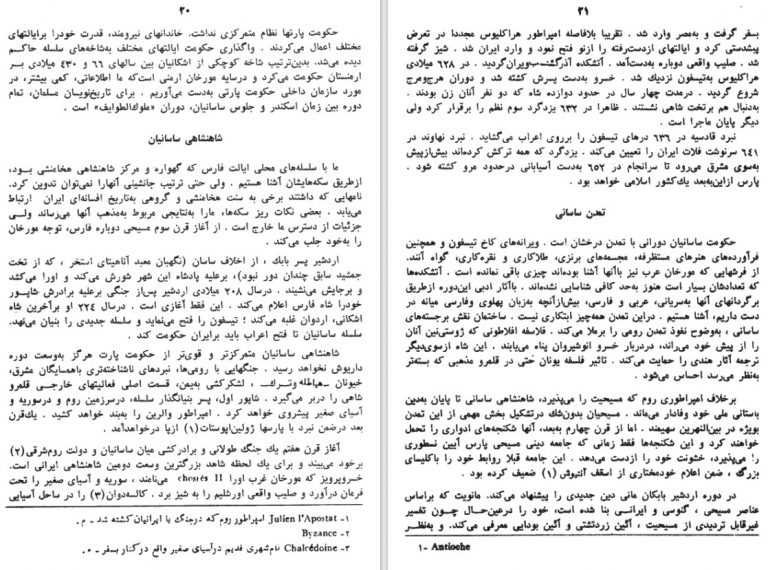 ۲۰
حکومت پارتها نظام متمرکزی نداشت. خاندانهای نیرومند، قدرت خودرا برایالتهای
مختلف اعمال می‌کردند . واگذاری حکومت ایالتهای مختلف به‌شاخه‌های سلسله حاکم
دیده می‌شد. بدین‌ترتیب شاخه کوچکی از اشکانیان بین سالهای ۶۶ و ۴۳۰ میلادی بر
ارمنستان حکومت می‌کرد و درسایه مورخان ارمنی‌است‌که ما اطلاعاتی، کمی بیشتر، در
مورد سازمان داخلی حکومت پارتی به‌دست می‌آوریم . برای تاریخ‌نویسان مسلمان، تمام
دوره بین زمان اسکندر و جلوس ساسانیان، دوران «ملوک‌الطوایف» است .
شاهنشاهی ساسانیان
ما با سلسله‌های محلی ایالت فارس که گهواره و مرکز شاهنشاهی هخامنشی بود،
ازطریق سکه‌هایشان آشنا هستیم . ولی حتی ترتیب جانشینی آنهارا نمی‌توان تدوین کرد.
نامهایی که داشتند برخی به سنت هخامنشی و گروهی به‌تاریخ افسانه‌ای ایران ارتباط
می‌یابد . بعضی نکات ریز سکه‌ها، مارا به‌نتایجی مربوط به‌مذهب آنها می‌رساند ولی
جزئیات از دسترس ما خارج است . از آغاز قرن سوم مسیحی دوباره فارس، توجه مورخان
را به‌خود جلب می‌کند .
اردشیر پسر بابک ، از اخلاف ساسان (نگهبان معبد آناهیتای استخر ، که از تخت
جمشید سابق چندان دور نبود)، برعلیه پادشاه این شهر شورش می‌کند و اورا می‌کشد
و برجایش می‌نشیند . درسال ۲۰۸ میلادی اردشیر پس‌از جنگی برعلیه برادرش شاپور
خودرا شاه فارس اعلام می‌کند . این فقط آغازی است . درسال ۲۲۴ او برآخرین شاه
اشکانی، اردوان غلبه می‌کند ؛ تیسفون را فتح می‌نماید و سلسله جدیدی را بنیان می‌نهد.
سلسله ساسانیان تا فتح اعراب باید برایران حکومت کند .
شاهنشاهی ساسانیان متمرکزتر و قوی‌تر از حکومت پارت هرگز به‌وسعت دوره
داریوش نخواهد رسید . جنگهایی با رومی‌ها، نبردهای ناشناخته‌تری باهمسایگان مشرق،
خیونان ـ هیاطله وترک ـ ، لشکرکشی به‌یمن، قسمت اصلی فعالیتهای خارجی قلمرو
شاهی را دربر می‌گیرد . شاپور اول، پسر بنیانگذار سلسله، درسرزمین روم و درسوریه و
آسیای صغیر پیشروی خواهد کرد . امپراطور والرین را به‌بند خواهد کشید . یک‌قرن
بعد درضمن نبرد با پارسها ژولین‌اپوستات (۱) ازپا درخواهدآمد .
آغاز قرن هفتم یک جنگ طولانی و برادرکشی میان ساسانیان و دولت روم‌شرقی (۲)
برخود می‌بیند و برای یک لحظه شاهد بزرگترین وسعت دومین شاهنشاهی ایرانی است.
خسروپرویز که مورخان غرب اورا II می‌نامند ، سوریه و آسیای صغیر را تحت
فرمان درآورد و صلیب واقعی اورشلیم را به شیز برد . کالسه‌دوان (۳) را در ساحل آسیایی
۱- Julien l'Apostat امپراطور روم که درجنگ با ایرانیان کشته شد ـ م .
۲- Byzance
۳- Chalcédoine نام‌شهری قدیم درآسیای صغیر واقع درکنار بسفر ـ م.
۲۱
بسفر گرفت و به‌مصر وارد شد . تقریبا بلافاصله امپراطور هراکلیوس مجددا در تعرض
پیشدستی کرد و ایالتهای ازدست‌رفته را ازنو فتح نمود و وارد ایران شد . شیز گرفته
شد . صلیب واقعی دوباره به‌دست‌آمد . آتشکده آذرگشنسب ویران‌گردید . در ۶۲۸ میلادی
هراکلیوس به‌تیسفون نزدیک شد . خسرو به‌دست پسرش کشته شد و دوران هرج‌ومرج
شروع گردید . درمدت چهار سال در حدود دوازده شاه که دو نفر آنان زن بودند .
به‌دنبال هم برتخت شاهی نشستند . ظاهرا در ۶۳۲ یزدگرد سوم نظم را برقرار کرد ولی
دیگر پایان ماجرا است .
نبرد قادسیه در ۶۳۶ درهای تیسفون را برروی اعراب می‌گشاید . نبرد نهاوند در
۶۴۱ سرنوشت فلات ایران را تعیین می‌کند . یزدگرد که همه ترکش کرده‌اند بیش‌ازپیش
به‌سوی مشرق می‌رود تا سرانجام در ۶۵۲ به‌دست آسیابانی درحدود مرو کشته شود .
پارس ازاین‌به‌بعد یک‌کشور اسلامی خواهد بود .
تمدن ساسانی
حکومت ساسانیان دورانی با تمدن درخشان است . ویرانه‌های کاخ تیسفون و همچنین
فرآورده‌های هنرهای مستظرفه، مجسمه‌های برنزی، طلاکاری و نقره‌کاری، گواه آنند.
از فرشهایی که مورخان عرب نیز باآنها آشنا بوده‌اند چیزی باقی نمانده است . آتشکده‌ها
که تعدادشان بسیار است هنوز به‌حد کافی شناسایی نشده‌اند . باآثار ادبی این‌دوره ازطریق
برگردانهای آنها به‌سریانی، عربی و فارسی، بیش‌ازآنچه به‌زبان پهلوی وفارسی میانه در
دست داریم، آشنا هستیم . دراین تمدن همه‌چیز ابتکاری نیست . ساختمان نقش برجسته‌های
ساسانی ، به‌وضوح نفوذ تمدن رومی را برملا می‌کند . فلاسفه افلاطونی که ژوستی‌نین آنان
را از پیش خود می‌راند، دردربار خسرو انوشیروان پناه می‌یابند . این شاه ازسوی‌دیگر
ترجمه آثار هندی را حمایت می‌کند . تاثیر فلسفه یونان حتی در قلمرو مذهبی که بسته‌تر
به‌نظر می‌رسد احساس می‌شود .
برخلاف امپراطوری روم که مسیحیت را می‌پذیرد، شاهنشاهی ساسانی تا پایان به‌دین
باستانی ملی خود وفادار می‌ماند . مسیحیان بدون‌شک درتشکیل بخش مهمی از این تمدن
بویژه در بین‌النهرین سهیمند . اما از قرن چهارم به‌بعد، آنها شکنجه‌های ادواری را تحمل
خواهند کرد و این شکنجه‌ها فقط زمانی که جامعه دینی مسیحی پارس آیین نسطوری
را می‌پذیرد، خشونت خود را ازدست می‌دهد . این جامعه قبلا روابط خود را باکلیسای
بزرگ ، ضمن اعلام خودمختاری از اسقف آنتیوش (۱) ضعیف کرده بود .
در دوره اردشیر بابکان مانی دین جدیدی را پیشنهاد می‌کند. مانویت که براساس
عناصر مسیحی ، گنوسی و ایرانی بنا شده است، خود را درعین‌حال چون تفسیر
غیرقابل تردیدی از مسیحیت ، آئین زردتشتی و آئین بودایی معرفی می‌کند. و به‌نظر
۱- Antioche